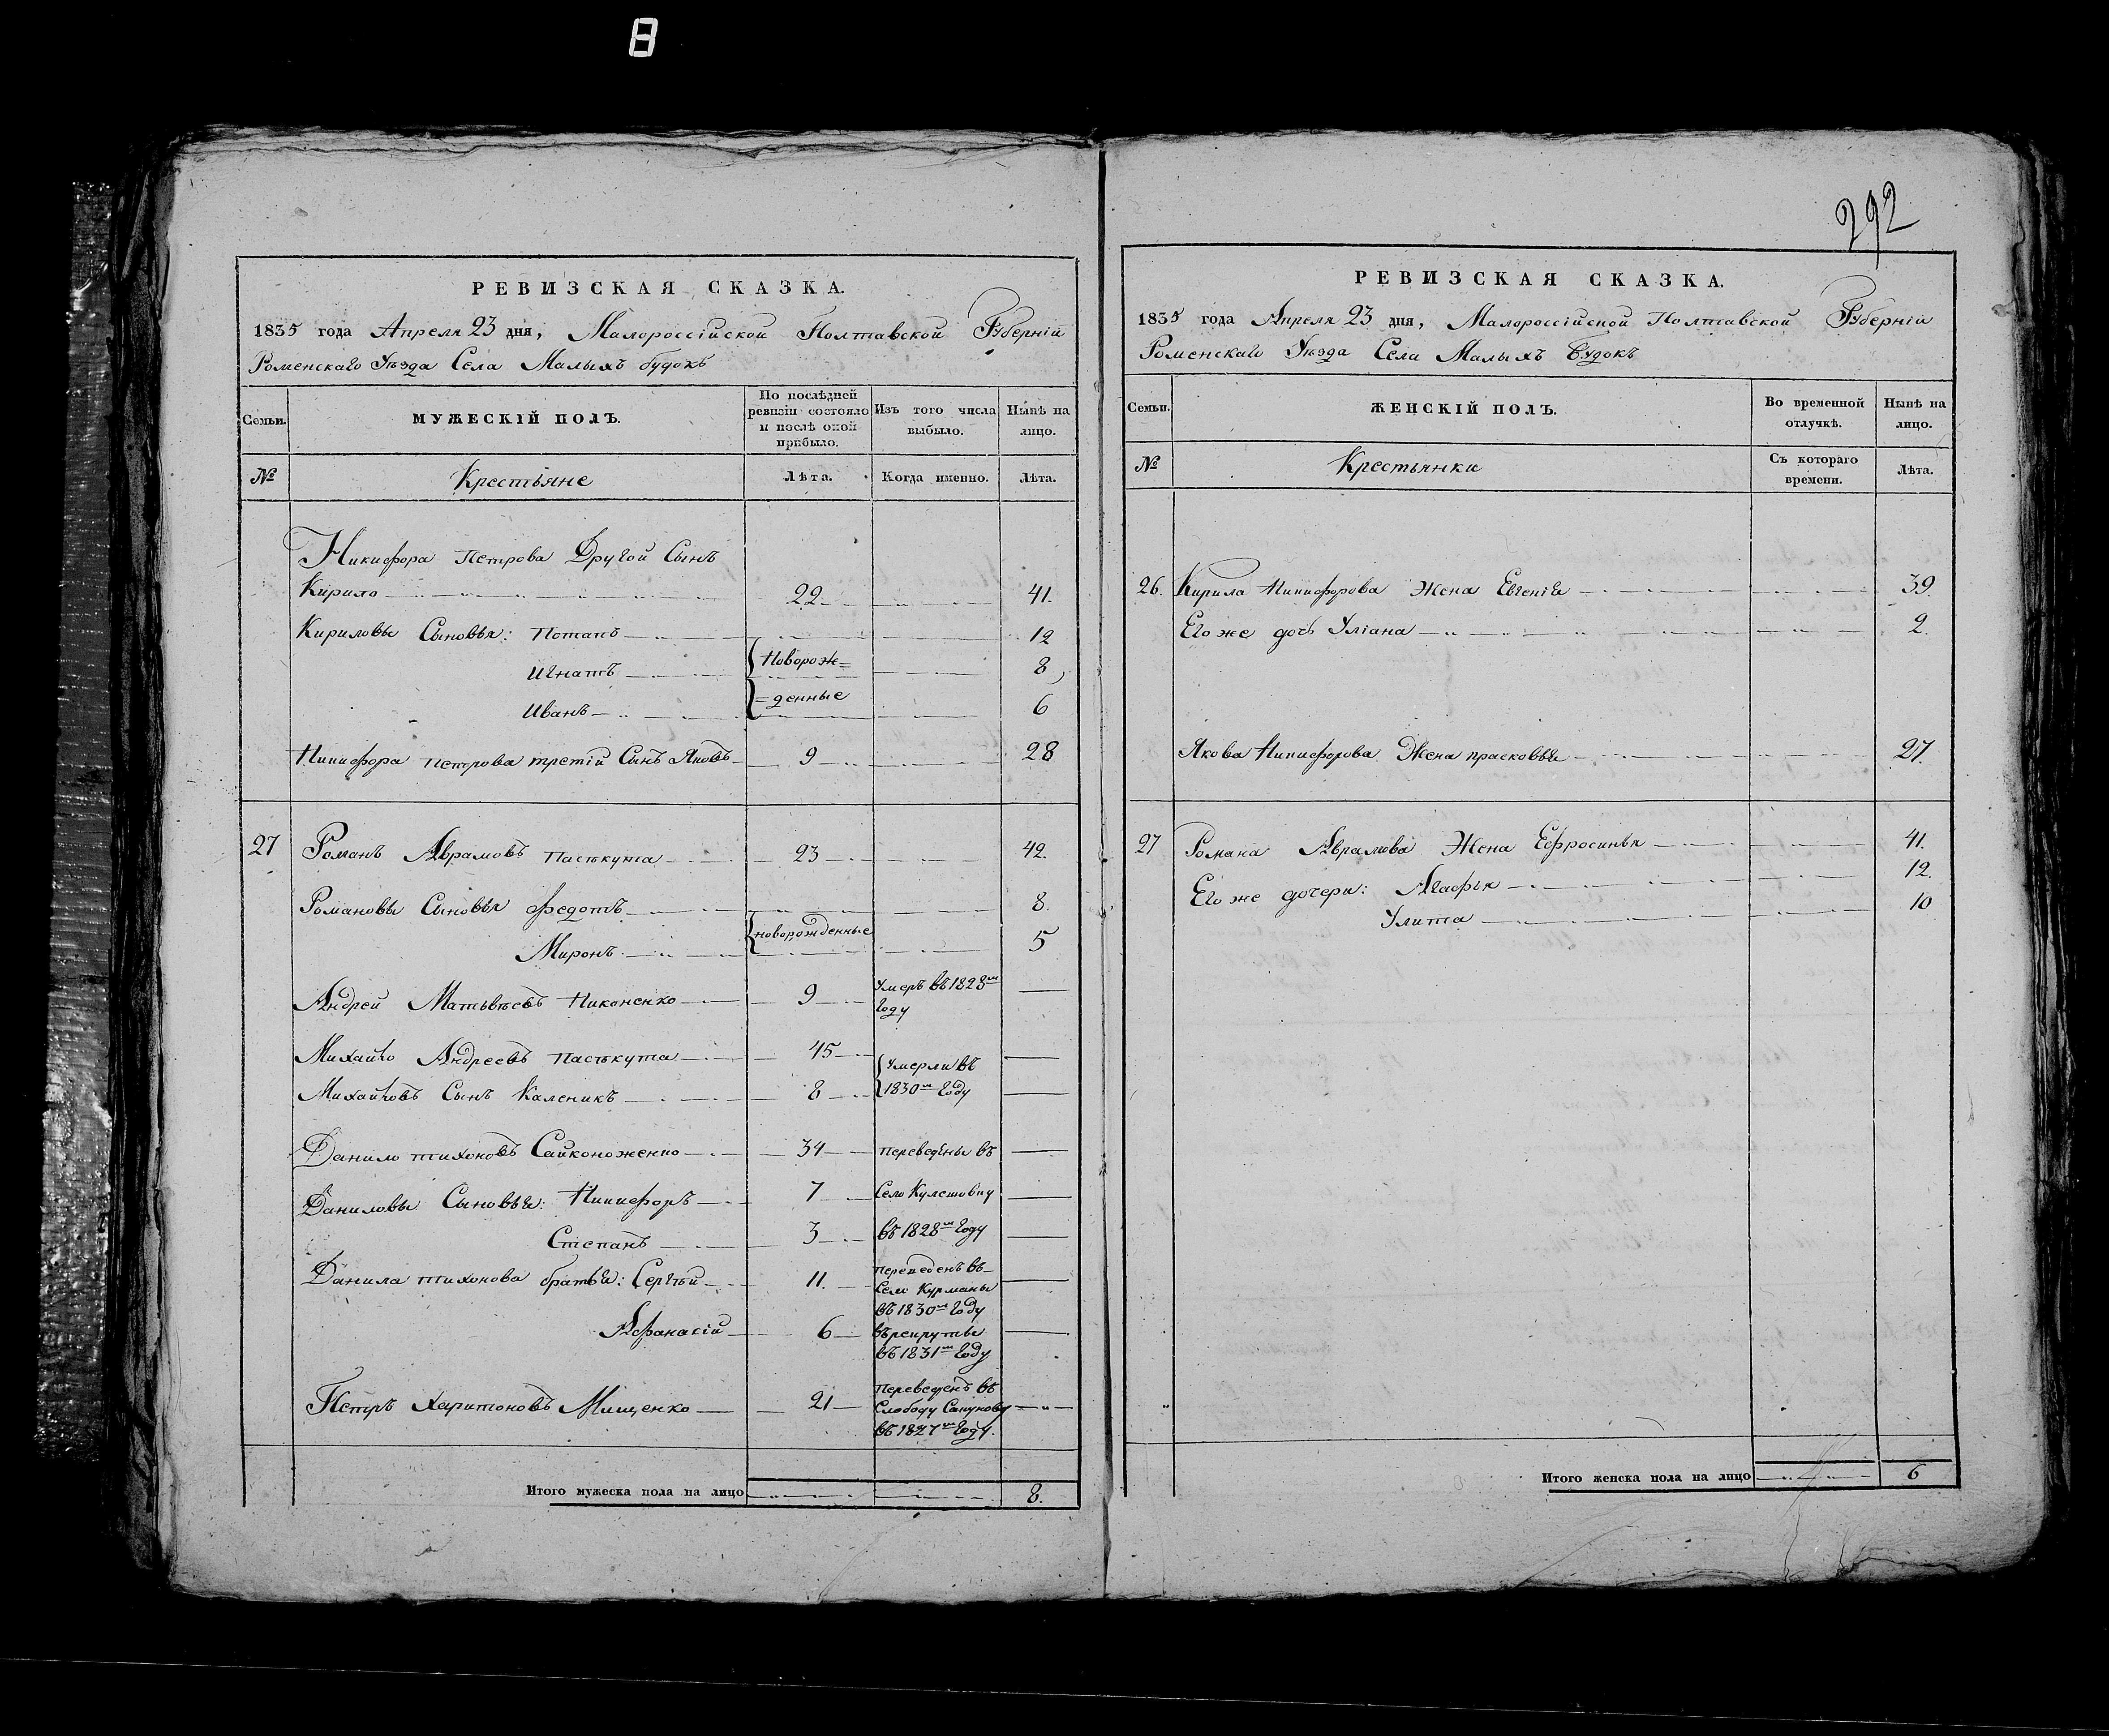 8
292
РЕВИЗСКАЯ СКАЗКА.
1835 года Апреля 23 дня, Малороссійской Полтавской Губерніи
Роменскаго Уѣзда Села Малыхъ будокъ
Семьи. МУЖЕСКІЙ ПОЛЪ. По послѣдней ревизіи состояло и послѣ оной прибыло. Изъ того числа выбыло. Нынѣ на лицо.
№ Крестьяне Лѣта. Когда именно. Лѣта.
Никифора Петрова Другой Сынъ
Кирило 22 41.
Кириловы Сыновья: Потапъ 12
Игнатъ Новорож= 8
Иванъ =денные 6
Никифора петрова третій Сынъ Яковъ 9 28
27 Романъ Аврамовъ Пасѣкута 23 42.
Романовы Сыновья Федотъ 8.
Миронъ новорожденные 5
Андрей Матвѣевъ Никоненко 9 Умеръ въ 1828м
году
Михайло Андреевъ Пасѣкута 45 Умерли въ
Михайловъ Сынъ Каленикъ 8 1830м Году
Данило тихоновъ Сайконоженко 34 переведены въ
Даниловы Сыновья: Никифоръ 7 Село Кулешовку
Степанъ 3 въ 1828м Году
Данила тихонова братья: Сергѣй 11. переведенъ въ
Село Курманы
въ 1830м Году
Афанасій 6 въ рекруты
въ 1831м Году
Петръ Харитоновъ Мищенко 21 Переведенъ въ
Слободу
въ 1827м Году.
Итого мужеска пола на лицо 8.
РЕВИЗСКАЯ СКАЗКА.
1835 года Апреля 23 дня, Малороссійской Полтавской Губерніи
Роменскаго Уѣзда Села Малыхъ Будокъ
Семьи. ЖЕНСКІЙ ПОЛЪ. Во временной отлучкѣ. Нынѣ на лицо.
№ Крестьянки Съ котораго времени. Лѣта.
26. Кирила Никифорова Жена Евгенія 39.
Его же дочь Уліана 2.
Якова Никифорова Жена прасковья 27.
27 Романа Аврамова Жена Ефросинья 41.
Его же дочери: Агафья 12.
Улита 10
Итого женска пола на лицо 6